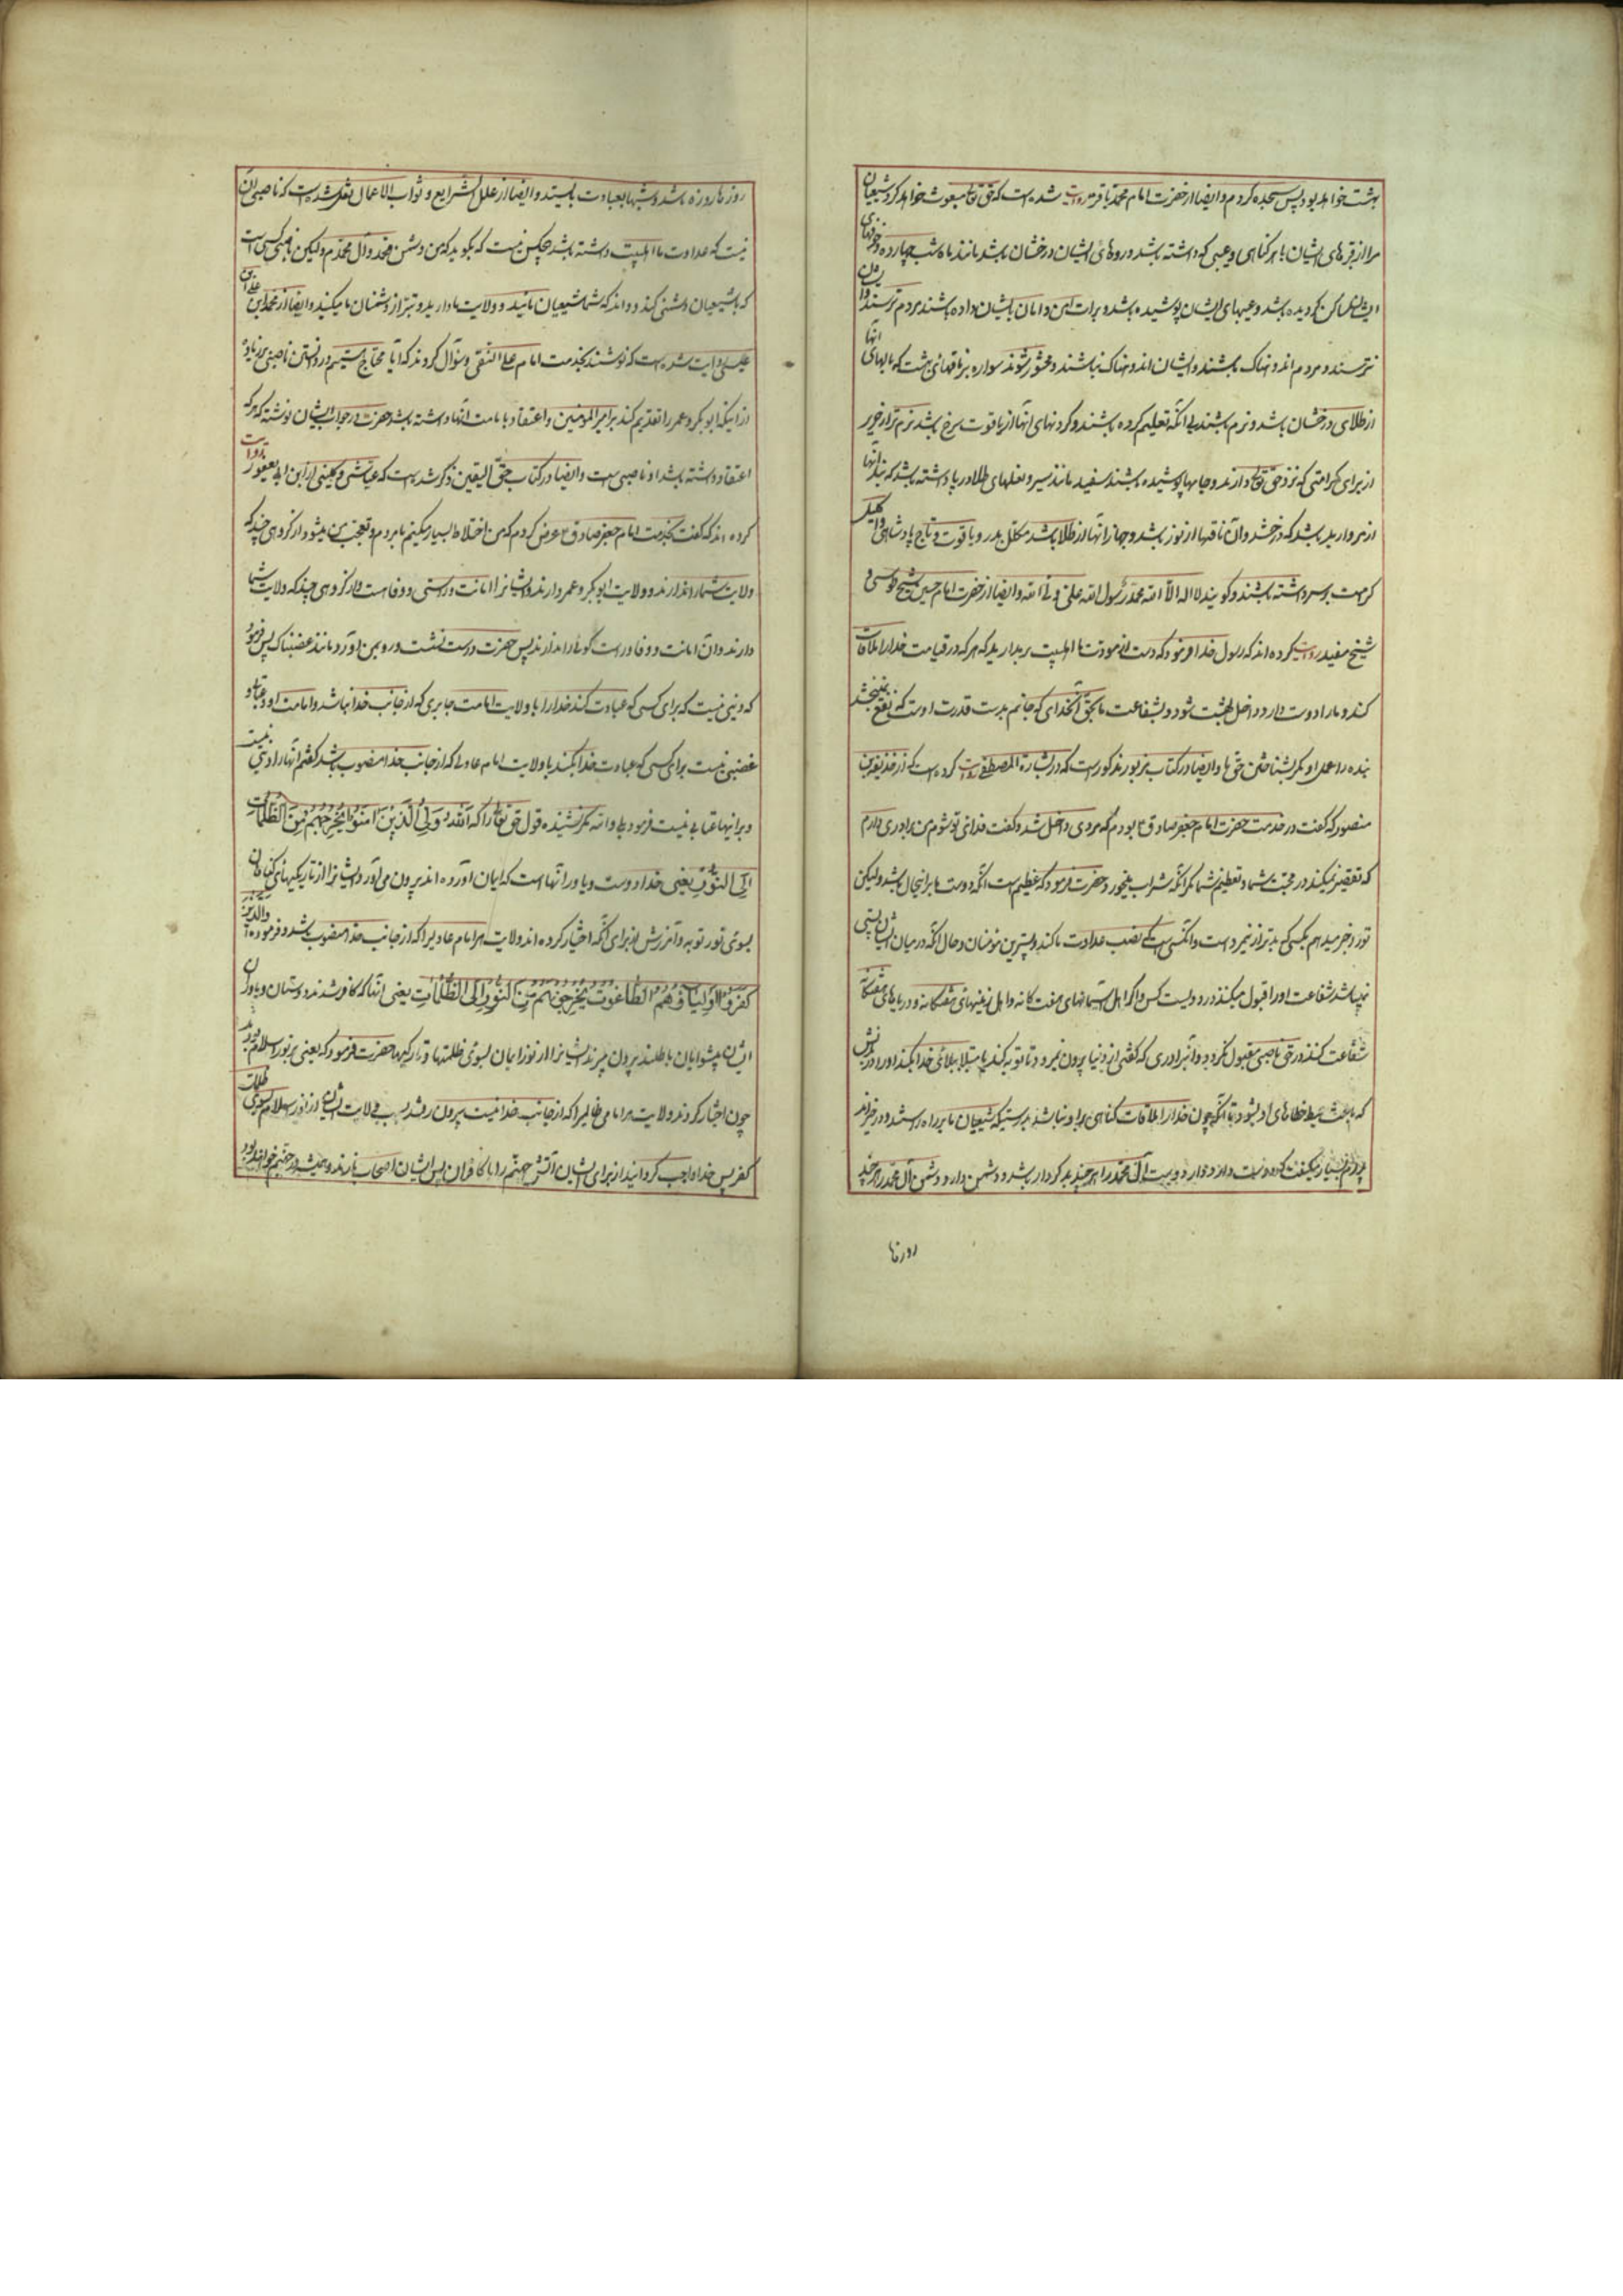 بهشت خواهد بود پس سجده کردم و ایضا از حضرت امام محمد باقر روایت شده است که حق تعالی مبعوث خواهد کرد شیعیان
مرا از قبرهای ایشان با هر گناهی و عیبی که داشته باشد و روهای ایشان درخشان باشد مانند ماه شب چهارده و خوفهای
ایشان ساکن گردیده باشد و عیبهای ایشان پوشیده باشد و برات امن و امان بایشان داده باشند مردم ترسند و ایشان
نترسند و مردم اندوهناک باشند و ایشان اندوهناک نباشند و محشور شوند سواره بر ناقهای بهشت که بالهای آنها
از طلای درخشان باشد و نرم باشند بی آنکه تعلیم کرده باشند و گردنهای آنها از یاقوت سرخ باشد نرم تر از حریر
از برای کرامتی که نزد حق تعالی دارند و جامها پوشیده باشند سفید مانند شیر و نعلهای طلا در پا داشته باشد که بند آنها
از مروارید باشد که درخشد و آن ناقها از نور باشد و جهاز آنها از طلا باشد مکلل بدر و یاقوت و تاج پادشاهی و اکلیل
کرامت بر سر داشته باشند و گویند لا اله الا الله محمد رسول الله علی ولی الله و ایضا از حضرت امام حسین شیخ طوسی و
شیخ مفید روایت کرده اند که رسول خدا فرمود که دست از مودت ما اهلبیت برندارید که هر که در قیامت خدا را ملاقات
کند و ما را دوست دارد داخل بهشت شود بشفاعت ما بحق آنخدای که جانم بدست قدرت اوست که نفع نمیبخشد
بنده را عمل او مگر بشناختن حق ما و ایضا در کتاب مزبور مذکور است که در بشارة المصطفی روایت کرده است که از حذیفة بن
منصور که گفت در خدمت حضرت امام جعفر صادق ع بودم که مردی داخل شد و گفت فدای تو شوم من برادری دارم
که تقصیر نمیکند در محبت شما و تعظیم شما مگر آنکه شراب میخورد حضرت فرمود که عظیم است آنکه دوست ما بر اینحال باشد ولیکن
تو را خبر میدهم بکسی که بدتر از نیمرد است و آنکسی است که نصب عداوت ما کند و پستترین مؤمنان و حال آنکه در میان ایشان پستی
نمیباشد شفاعت او را قبول میکنند در دویست کس و اگر اهل آسمانهای هفت گانه و اهل زمینهای هفتگانه و دریاهای هفتگانه
شفاعت کنند در حق ناصبی مقبول نگردد و آنبرادری که گفتی از دنیا بیرون نمیرود تا توبه کند یا مبتلا ببلائی خدا بکند او را در بدنش
که باعث حبط خطاهای او بشود تا آنکه چون خدا را ملاقات کند گناهی بر او نباشد بدرستیکه شیعیان ما بر راه راستند و در خیراند
پدرم بسیار میگفت که دوست دار دوستدار دوست آل محمد را هر چند بد کردار باشد و دشمن دار دشمن آل محمد را هر چند
روزها
روزها روزه باشد و شبها بعبادت بایستد و ایضا از علل الشرایع و ثواب الاعمال نقل شده است که ناصبی آن
نیست که عداوت ما اهلبیت داشته باشد چه کس نیست که بگوید که من دشمن محمد و آل محمدم ولیکن ناصبی کسی است
که با شیعیان دشمنی کند و داند که شما شیعیان مائید و ولایت ما دارید و تبرا از دشمنان ما میکنید و ایضا از محمد بن علی بن
عیسی روایت شده است که نوشتند بخدمت امام علی النقی و سؤال کردند که آیا محتاج هستیم در دانستن ناصبی بر زیاده
از اینکه ابو بکر و عمر را تقدیم کند بر امیر المؤمنین و اعتقاد بامامت آنها داشته باشد حضرت در جواب ایشان نوشته که هر که
اعتقاد داشته باشد او ناصبی است و ایضا در کتاب حق الیقین ذکر شده است که عیاشی و کلینی از ابن ابی یعفور روایت
کرده اند که گفت بخدمت امام جعفر صادق ع عرض کردم که من اختلاط بسیار میکنم با مردم و تعجب من میشود از گروهی چند که
ولایت شما را ندارند و ولایت ابو بکر و عمر دارند و ایشانرا امانت و راستی و وفا هست و از گروهی چند که ولایت شما
دارند و آن امانت و وفا و راست گوئی را ندارند پس حضرت درست نشست و رو بمن آورد مانند غضبناک پس فرمود
که دینی نیست که برای کسی که عبادت کند خدا را با ولایت امامت جایری که از جانب خدا نباشد و امامت او و عتاب و
غضبی نیست برای کسی که عبادت خدا بکند با ولایت امام عادلی که از جانب خدا منصوب باشد گفتم آنها را دینی نیست
و بر اینها عتابی نیست فرمود بلی و الله مگر نشنیده قول حق تعالی را که اَللهُ وَلِیُّ الَّذِینَ اٰمَنُوا یُخْرِجُهُمْ مِنَ الظُّلُمَاتِ
اِلَی النُّورِ یعنی خدا دوست و یاور آنها است که ایمان آورده اند بیرون می آورد ایشانرا از تاریکیهای گناهان
بسوی نور توبه و آمرزش از برای آنکه اختیار کرده اند ولایت هر امام عادلیرا که از جانب خدا منصوب باشد و فرموده است والذین
کَفَرُوا اَوْلِیَاؤُهُمُ الطَّاغُوتُ یُخْرِجُونَهُمْ مِنَ النُّورِ اِلَی الظُّلُمَاتِ یعنی آنها که کافر شدند دوستان و یاوران
ایشان پیشوایان باطلند بیرون میبرند ایشانرا از نور ایمان بسوی ظلمتها و تاریکیها حضرت فرمود که یعنی بر نور اسلام بودند
چون اختیار کردند ولایت هر امامی ظالمیرا که از جانب خدا نیست بیرون رفتند بسبب ولایت ایشان از نور اسلام بسوی ظلمات
کفر پس خدا واجب گردانید از برای ایشان آتش جهنم را با کافران پس ایشان اصحاب نارند و همیشه در جهنم خواهند بود